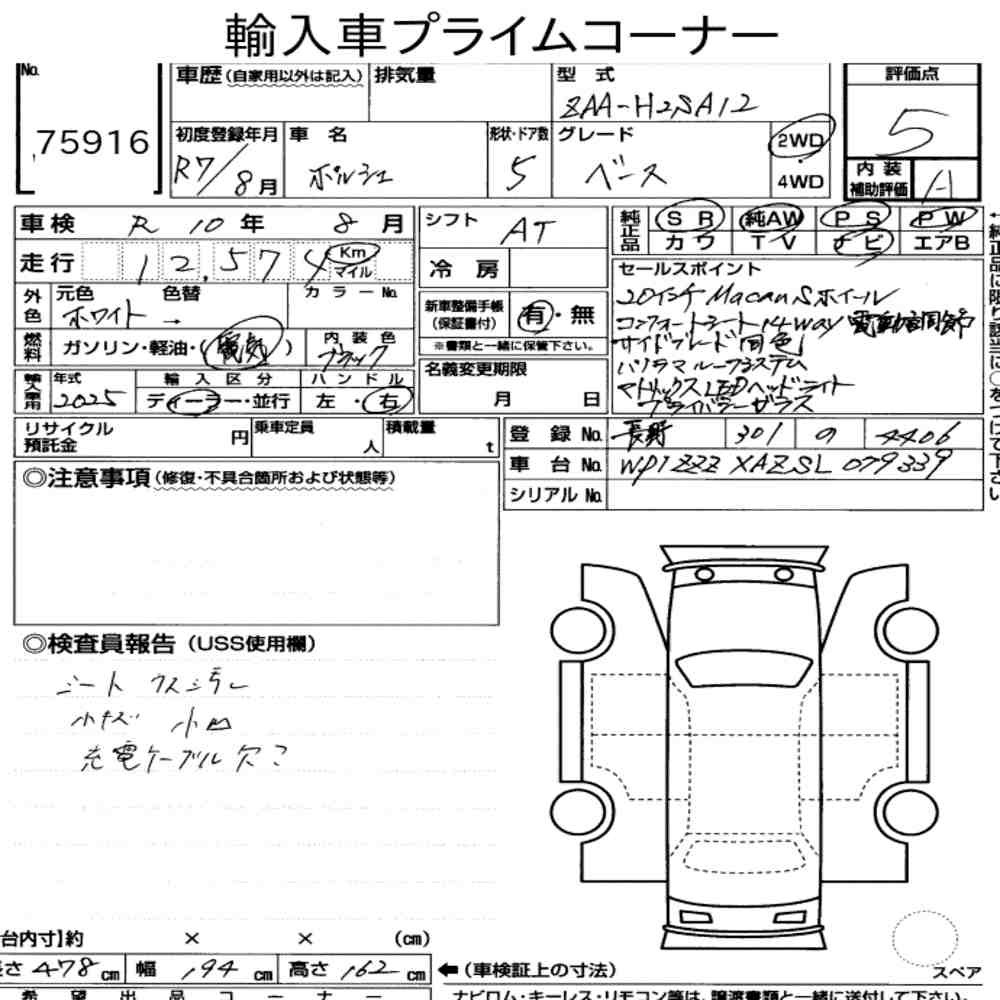 輸入車プライムコーナー
No. 75916
車歴(自家用以外は記入) 排気量 型式 ZAA-H2SA12 評価点 5
初度登録年月 R7/8月 車名 ポルシェ 形状・ドア数 5 グレード ベース 2WD・4WD
内装補助評価 A
車検 R 10年 8月 シフト AT
純正品 SR 純AW PS PW
カワ TV ナビ エアB
走行 12,574 Km マイル 冷房
外色 元色 ホワイト → 色替 カラーNo.
新車整備手帳(保証書付) 有・無
※書類と一緒に保管下さい。
燃料 ガソリン・軽油・(電気) 内装色 ブラック
名義変更期限 月 日
年式 2025 輸入区分 ディーラー・並行 ハンドル 左・右
セールスポイント
20インチ Macan Sホイール
コンフォートシート 14way 電動調節
サイドブレード(同色)
パノラマルーフシステム
マトリックスLEDヘッドライト
プライバシーガラス
リサイクル預託金 円 乗車定員 人 積載量 t
登録No. 長野 301 の 4406
車台No. WP1ZZZ XAZSL 079339
シリアルNo.
◎注意事項(修復・不具合箇所および状態等)
◎検査員報告(USS使用欄)
シート クスミ汚レ
小キズ 小凹
充電ケーブル欠こ
台内寸】約 × × (cm)
長さ 478 cm 幅 194 cm 高さ 162 cm
←(車検証上の寸法)
スペア
希望出品コーナー
ナビロム・キーレス・リモコン等は、譲渡書類と一緒に送付して下さい。